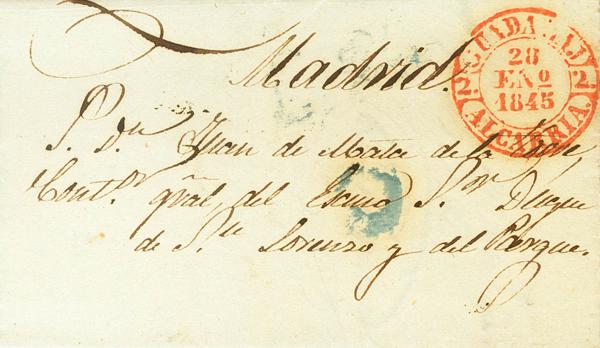 Madrid.
GUADALAJ
2 28 2
ENº
1845
ALCARRIA.
S. Dn. Juan de Mata de la
Contor. gral. del Escmo Sor. Duque
de Sn. Lorenzo y del Parque.